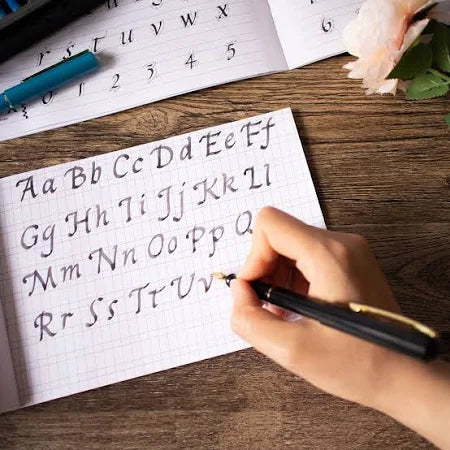 r s t u v w x y z
0 1 2 3 4 5 6
Aa Bb Cc Dd Ee Ff
Gg Hh Ii Jj Kk Ll
Mm Nn Oo Pp Q
Rr Ss Tt Uv